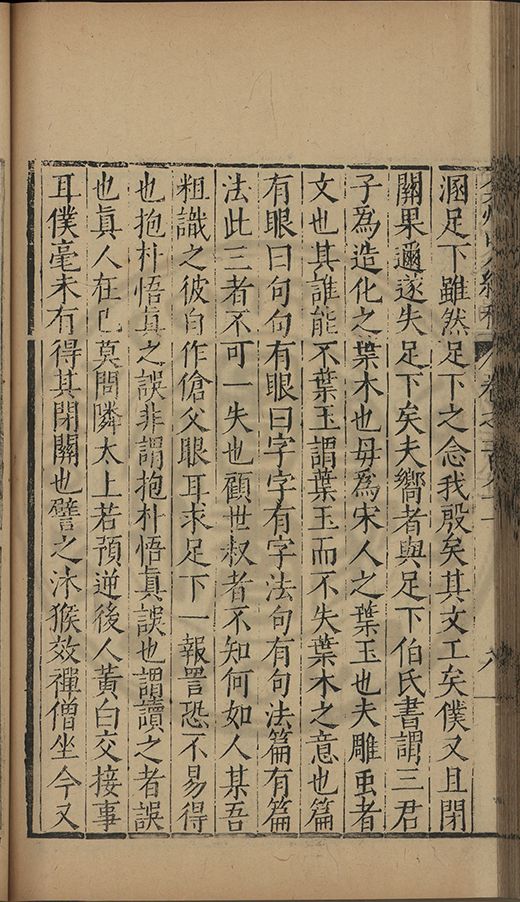 溷足下雖然足下之念我殷矣其文工矣僕又且閉
關果邇遂失足下矣夫嚮者與足下伯氏書謂三君
子為造化之葉木也毋為宋人之葉玉也夫雕虫者
文也其誰能不葉玉謂葉玉而不失葉木之意也篇
有眼曰句句有眼曰字字有字法句有句法篇有篇
法此三者不可一失也顧世叔者不知何如人某吾
粗識之彼自作傖父眼耳求足下一報詈恐不易得
也抱朴悟真之誤非謂抱朴悟真誤也謂讀之者誤
也真人在己莫問隣太上若預逆後人黃白交接事
耳僕毫未有得其閉關也譬之沐猴效禪僧坐今又